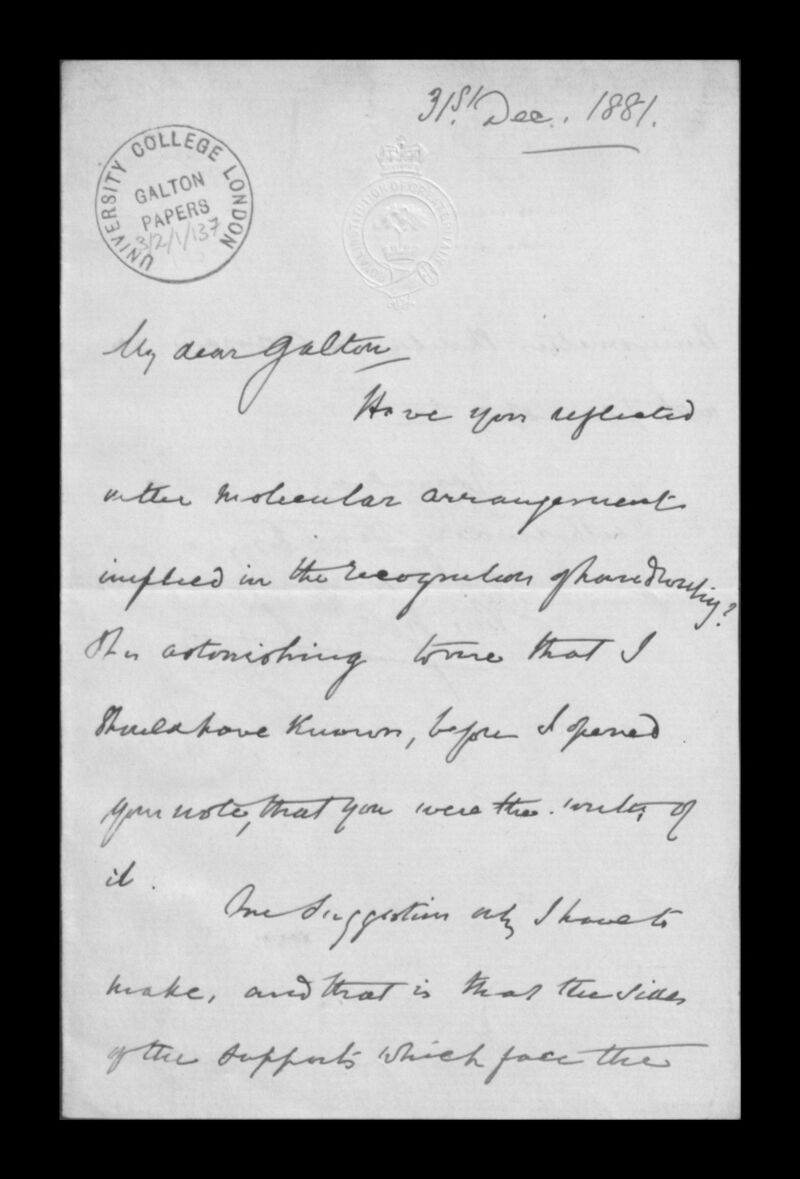 31st. Dec. 1881.
UNIVERSITY COLLEGE LONDON
GALTON
PAPERS
3/2/1/137
ROYAL INSTITUTION OF GREAT BRITAIN
My dear Galton
Have you reflected
on the molecular arrangement
implied in the recognition of handwriting?
It is astonishing to me that I
should have known, before I opened
your note, that you were the writer of
it.
One suggestion only I have to
make, and that is that the sides
of the supports which face the